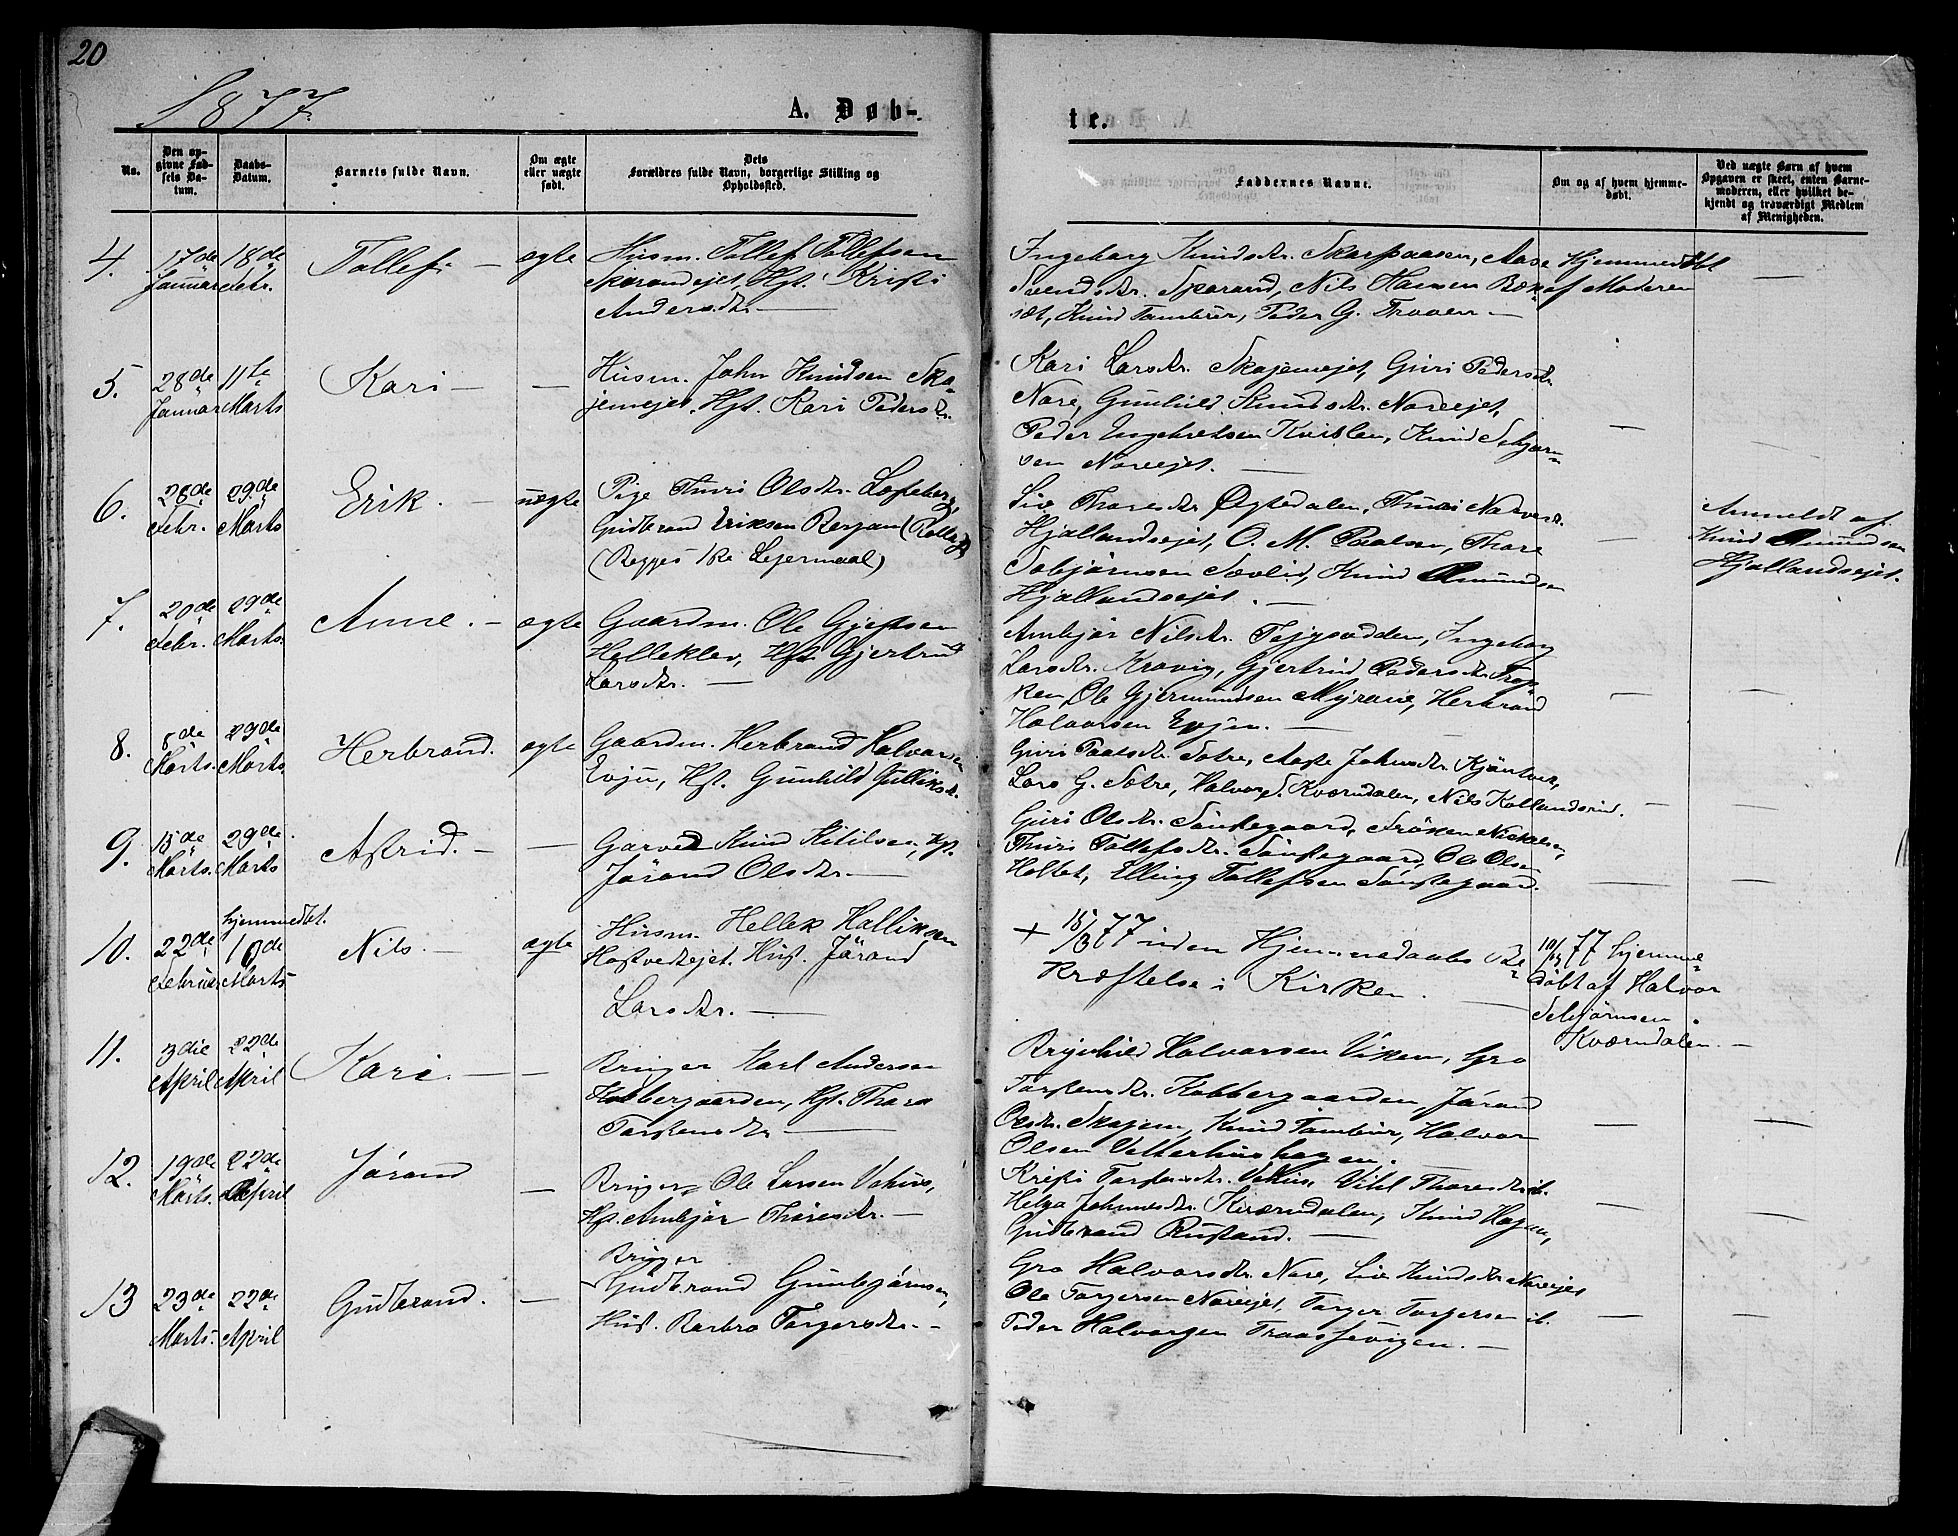 20
1877.
A. Døb-
te.
No.
Den op-
givne Fød-
sels Da-
tum.
Daabs-
Datum.
Barnets fulde Navn.
Om ægte
eller uægte
født.
Dets
Forældres fulde Navn, borgerlige Stilling og
Opholdssted.
Faddernes Navne.
Om og af hvem hjemme-
døbt.
Ved uægte Børn af hvem
Opgaven er skeet, enten Barne-
moderen, eller hvilket be-
kjendt og troværdigt Medlem
af Menigheden.
4.
17de
Januar
18de
Febr.
Tollef. —
ægte
Husm. Tollef Tollefsen
Skjørandejet, Hst. Kristi
Andersdtr. —
Ingeborg Knudsdtr. Skarpaasen, Aase
Svendsdtr. Skarand, Nils Hansen Bæk-
sæt, Knud Tambur, Peder G. Traaen —
Hjemmedøbt
af Moderen
—
5.
28de
Januar
11te
Marts
Kari —
—
Husm. John Knudsen Ska-
jemejet, Hst. Kari Pedersdtr.
Kari Larsdtr. Skajemejet, Guri Pedersdtr.
Nore, Gunhild Knudsdtr. Noreejet,
Peder Ingebretsen Kvislen, Knud Sebjørn-
sen Noreejet. —
—
6.
28de
Febr.
29de
Marts
Erik. —
uægte
Pige Thuri Olsdtr.
Gudbrand Eriksen Bergan
(Begges 1ste Lejermaal)
Liv Thoresdtr. Øygtedalen, Thuri
Hjallandsejet, O. M. Paulsen, Thore
Sebjørnsen Sævlid, Knud Amundsen
Hjallandsejet. —
—
Anmeldt af
Knud Amundsen
Hjallandsejet.
7.
20de
Febr.
29de
Marts.
Anne. —
ægte
Gaardm. Ole Gjestsen
Helleklev, Hst. Gjertrud
Larsdtr. —
Ambjør Nilsdtr. Ingeborg
Larsdtr. Kravig, Gjertrud Pedersdtr.
Ole Gjermundsen Myrane, Herbrand
Halvorsen Evjen. —
—
—
8.
8de
Marts.
29de
Marts.
Herbrand.
ægte
Gaardm. Herbrand Halvorsen
Evju, Hst. Gunhild Gulliksdtr.
Guri Paalsdtr. Sotre, Aaste Johnsdtr.
Lars G. Sotre, Halvor S. Kværndalen, Nils Kollandsrud.
—
—
9.
15de
Marts.
29de
Marts
Astrid. —
—
Garver Knud Kitilsen, Hst.
Jørand Olsdtr. —
Guri Olsdtr. Søndregaard, Frøken Nickelsen,
Thuri Tollefsdtr. Ole Olsen
Holtet, Elling Tollefsen
—
—
10.
22de
Februar
hjemmedøbt.
10de
Marts
Nils. —
ægte
Husm. Hellek Halliksen
Hostvedtejet. Hust. Jørand
Larsdtr. —
+ 15/3 77 uden Hjemmedaabs Be-
kræftelse i Kirken. —
10/3 77 hjemme-
døbt af Halvor
Sebjørnsen
Kværndalen. —
11.
3die
April
22de
April
Kari. —
—
Bruger Karl Andersen
Kobbergaarden, Hst. Thora
Torstensdtr. —
Brynhild Halvorsen Viken, Gro
Torstensdtr. Kobbergaarden, Jørand
Olsdtr. Skajem, Knud Tambur, Halvor
Olsen Vetterhushagen.
—
—
12.
19de
Marts.
22de
April
Jørand
—
Bruger Ole Larsen
Hst. Ambjør Thoresdtr. —
Kristi Torstensdtr. Thoresdtr. ib.
Helga Johannesdtr. Kværndalen, Knud Hagen,
Gudbrand Rustand. —
—
—
13
23de
Marts.
22de
April
Gudbrand.
—
Bruger
Gudbrand Gunbjørnsen,
Hust. Barbro Torgersdtr. —
Gro Halvorsdtr. Nore, Liv Knudsdtr. Noreejet
Ole Torgersen Noreejet, Torger Torgersen ib.
Peder Halvorsen —
—
—